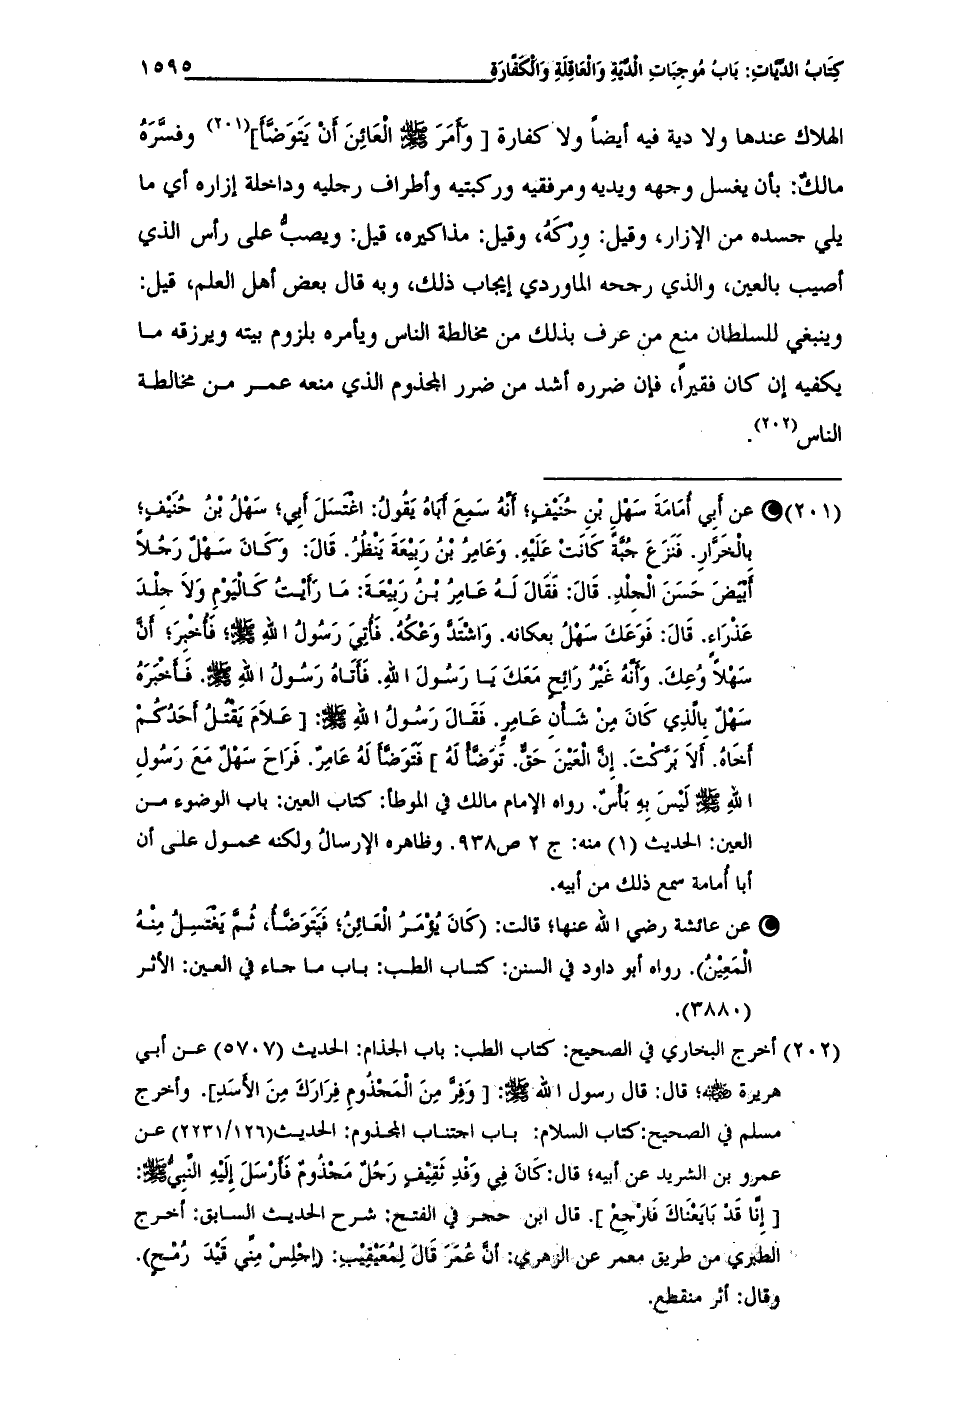 كِتَابُ الدِّيَاتِ: بَابُ مُوجِبَاتِ الْدِّيَةِ وَالْعَاقِلَةِ وَالْكَفَّارَةِ ١٥٩٥
الهلاك عندها ولا دية فيه أيضاً ولا كفارة [ وَأَمَرَ ﷺ الْعَائِنَ أَنْ يَتَوَضَّأَ](٢٠١) وفسَّرَهُ
مالكٌ: بأن يغسل وجهه ويديه ومرفقيه وركبتيه وأطراف رجليه وداخلة إزاره أي ما
يلي جسده من الإزار، وقيل: وِرْكَهُ، وقيل: مذاكيره، قيل: ويصبُّ على رأس الذي
أصيب بالعين، والذي رجحه الماوردي إيجاب ذلك، وبه قال بعض أهل العلم، قيل:
وينبغي للسلطان منع من عرف بذلك من مخالطة الناس ويأمره بلزوم بيته ويرزقه ما
يكفيه إن كان فقيراً، فإن ضرره أشد من ضرر المجذوم الذي منعه عمر من مخالطة
الناس(٢٠٢).
(٢٠١) عن أَبِي أُمَامَةَ سَهْلِ بْنِ حُنَيْفٍ؛ أَنَّهُ سَمِعَ أَبَاهُ يَقُولُ: اغْتَسَلَ أَبِي؛ سَهْلُ بْنُ حُنَيْفٍ؛
بِالْخَرَّارِ. فَنَزَعَ جُبَّةً كَانَتْ عَلَيْهِ. وَعَامِرُ بْنُ رَبِيْعَةَ يَنْظُرُ. قَالَ: وَكَانَ سَهْلٌ رَجُلاً
أَبْيَضَ حَسَنَ الْجِلْدِ. قَالَ: فَقَالَ لَهُ عَامِرُ بْنُ رَبِيْعَةَ: مَا رَأَيْتُ كَالْيَوْمِ وَلاَ جِلْدَ
عَذْرَاءِ. قَالَ: فَوَعَكَ سَهْلٌ بمكانه. وَاشْتَدَّ وَعْكُهُ. فَأُتِيَ رَسُولُ اللهِ ﷺ؛ فَأُخْبِرَ؛ أَنَّ
سَهْلاً وُعِكَ. وَأَنَّهُ غَيْرُ رَائِحٍ مَعَكَ يَا رَسُولَ اللهِ. فَأَتَاهُ رَسُولُ اللهِ ﷺ. فَأَخْبَرَهُ
سَهْلٌ بِالَّذِي كَانَ مِنْ شَأْنِ عَامِرٍ. فَقَالَ رَسُولُ اللهِ ﷺ: [ عَلاَمَ يَقْتُلُ أَحَدُكُمْ
أَخَاهُ. أَلاَ بَرَّكْتَ. إِنَّ الْعَيْنَ حَقٌّ. تَوَضَّأْ لَهُ ] فَتَوَضَّأَ لَهُ عَامِرٌ. فَرَاحَ سَهْلٌ مَعَ رَسُولِ
اللهِ ﷺ لَيْسَ بِهِ بَأْسٌ. رواه الإمام مالك في الموطأ: كتاب العين: باب الوضوء من
العين: الحديث (١) منه: ج ٢ ص٩٣٨. وظاهره الإرسالُ ولكنه محمول على أن
أبا أُمامة سمع ذلك من أبيه.
عن عائشة رضي الله عنها؛ قالت: (كَانَ يُؤْمَرُ الْعَائِنُ؛ فَيَتَوَضَّأُ، ثُمَّ يَغْتَسِلُ مِنْهُ
الْمَعِيْنُ). رواه أبو داود في السنن: كتاب الطب: باب ما جاء في العين: الأثر
(٣٨٨٠).
(٢٠٢) أخرج البخاري في الصحيح: كتاب الطب: باب الجذام: الحديث (٥٧٠٧) عن أبي
هريرة ﷺ؛ قال: قال رسول الله ﷺ: [ وَفِرَّ مِنَ الْمَجْذُومِ فِرَارَكَ مِنَ الأَسَدِ]. وأخرج
مسلم في الصحيح:كتاب السلام: باب اجتناب المجذوم: الحديث(٢٢٣١/١٢٦) عن
عمرو بن الشريد عن أبيه؛ قال:كَانَ فِي وَفْدِ ثَقِيْفٍ رَجُلٌ مَجْذُومٌ فَأَرْسَلَ إِلَيْهِ النَّبِيُّ ﷺ:
[ إِنَّا قَدْ بَايَعْنَاكَ فَارْجِعْ ]. قال ابن حجر في الفتح: شرح الحديث السابق: أخرج
الطبري من طريق معمر عن الزهري: أنَّ عُمَرَ قَالَ لِمُعَيْقِيْبَ: (إِجْلِسْ مِنِّي قَيْدَ رُمْحٍ).
وقال: أثر منقطع.